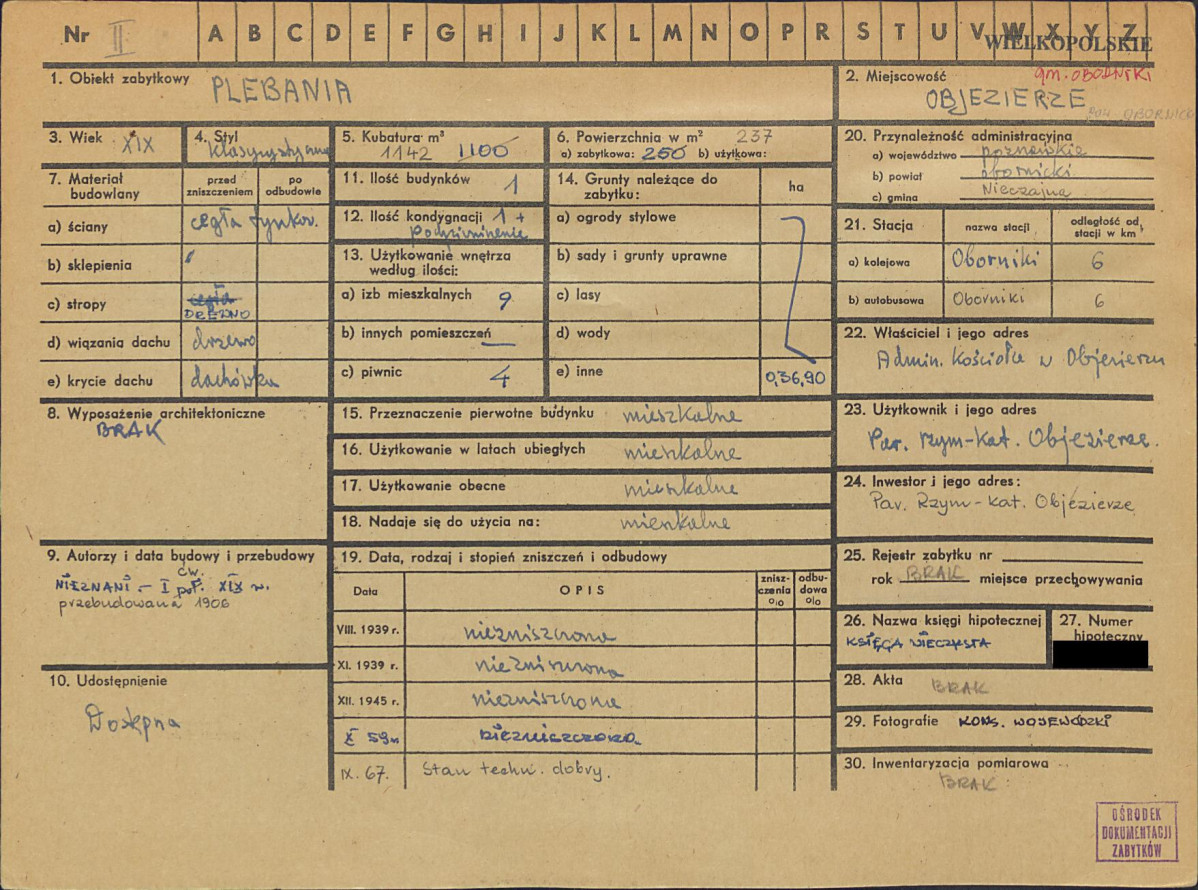 Nr II A B C D E F G H I J K L M N O P R S T U V W X Y Z
WIELKOPOLSKIE
1. Obiekt zabytkowy PLEBANIA
2. Miejscowość gm. OBORNIKI
OBJEZIERZE
pow. OBORNICKI
3. Wiek XIX
4. Styl klasycystyczny
5. Kubatura m³
1142 1100
6. Powierzchnia w m² 237
a) zabytkowa: 250 b) użytkowa:
7. Materiał budowlany
przed zniszczeniem
po odbudowie
a) ściany cegła tynkow.
b) sklepienia
c) stropy cegła
DREWNO
d) wiązania dachu drzewo
e) krycie dachu dachówka
8. Wyposażenie architektoniczne
BRAK
9. Autorzy i data budowy i przebudowy
ćw.
NIEZNANI – I poł. XIX w.
przebudowana 1906
10. Udostępnienie
Dostępna
11. Ilość budynków 1
12. Ilość kondygnacji 1 +
Podziemienie
13. Użytkowanie wnętrza
według ilości:
a) izb mieszkalnych 9
b) innych pomieszczeń —
c) piwnic 4
14. Grunty należące do
zabytku:
ha
a) ogrody stylowe
b) sady i grunty uprawne
c) lasy
d) wody
e) inne 0,36,90
15. Przeznaczenie pierwotne budynku mieszkalne
16. Użytkowanie w latach ubiegłych mieszkalne
17. Użytkowanie obecne mieszkalne
18. Nadaje się do użycia na: mieszkalne
19. Data, rodzaj i stopień zniszczeń i odbudowy
Data
OPIS
znisz-
czenia
%
odbu-
dowa
%
VIII. 1939 r. niezniszczona
XI. 1939 r. niezniszczona
XII. 1945 r. niezniszczona
X 59 r. niezniszczona
IX. 67. Stan techn. dobry.
20. Przynależność administracyjna
a) województwo poznańskie
b) powiat obornicki
c) gmina Nieczajna
21. Stacja
nazwa stacji
odległość od
stacji w km
a) kolejowa Oborniki 6
b) autobusowa Oborniki 6
22. Właściciel i jego adres
Admin. Kościoła w Objezierzu
23. Użytkownik i jego adres
Par. rzym-kat. Objezierze.
24. Inwestor i jego adres:
Par. Rzym-kat. Objezierze
25. Rejestr zabytku nr
rok BRAK miejsce przechowywania
26. Nazwa księgi hipotecznej
KSIĘGA WIECZYSTA
27. Numer
hipoteczny
28. Akta BRAK
29. Fotografie KONS. WOJEWÓDZKI
30. Inwentaryzacja pomiarowa
BRAK
OŚRODEK
DOKUMENTACJI
ZABYTKÓW